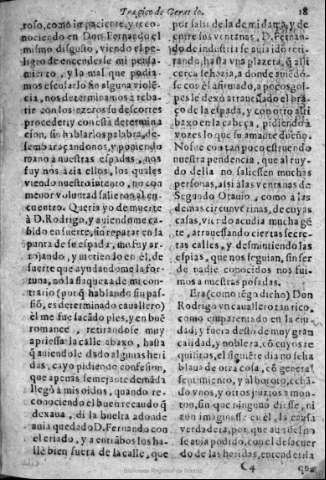 Tragico de Gerardo. 18
roso, como impaciente, y reco-
nociendo en Don Fernando el
mismo disgusto, viendo el pe-
ligro de encenderse mi pensa-
miento, y la mal que podia-
mos escusar lo sin alguna violé-
cia, nos determinamos a reba-
tir con los azeros su descortes
proceder y con esta determina
cion, sin hablarlos palabra, de-
sembaraçandonos, y poniendo
mano a nuestras espadas, nos
fuy nos azia ellos, los quales
viendo nuestro intento, no con
menor voluntad salieron al en-
cuentro. Queria yo de muerte
à D. Rodrigo, y auiendome ca-
bido en suerte, sin reparar en la
punta de su espada, me fuy ar-
rojando, y metiendo en él, de
suerte que ayudandome la for-
tuna, no la flaqueza de mi con-
trario (porq̃ hablando sin pas-
sió, es determinado cauallero)
el me fue sacádo pies, y en bué
romance, retirandose muy
apriessa la calle abaxo, hasta
q̃ auiendole dado algunas heri
das, cayo pidiendo confesion,
que apenas semejante demáda
llegó à mis oidos, quando re-
conociendo el buen recaudo q̃
dexaua, di la buelta adonde
auia quedado D. Fernando con
el criado, y a entrábos los ha-
llé bien fuera de la calle, que
por salir de la de mi dama, y de
entre sus ventanas, D. Fernan-
do de industria se auia ido reti-
rando, hasta vna plaçeta, q̃ alli
cerca se hazia, a donde auiédo-
se cos él afirmado, a pocos gol-
pes le dexó atrauessado el bra-
ço de la espada, y con otro alsi
baxo en la cabeça, pidiendo à
vozes lo que su amante dueño.
No fue con tan poco estruendo
nuestra pendencia, que al ruy-
do della no saliessen muchas
personas, assi a las ventanas de
Segundo Otauio, como a las
demas circunvezinas, de cuyas
casas, visto acudia mucha gé-
te, atrauessando ciertas secre-
tas calles, y desmintiendo las
espias, que nos seguian, sin ser
de nadie conocidos nos fui-
mos a nuestras posadas.
Era (como tégo dicho) Don
Rodrigo vn cauallero tan rico,
como emparentado en la ciu-
dad; y fuera desto de muy gran
calidad, y nobleza, có cuyos re
quisitos, el siguiéte dia no se ha
blaua de otra cosa, có general
sentimiento, y alboroto, echá-
do vnos, y otros juizios a mon-
ton, sin que ninguno diesse, ni
con imaginasse en él, la causa
verdadera, porque aunque esto
se auia podido con el desacuer
do de las heridas, entenderla
C 4 que
Biblioteca Regional de Madrid